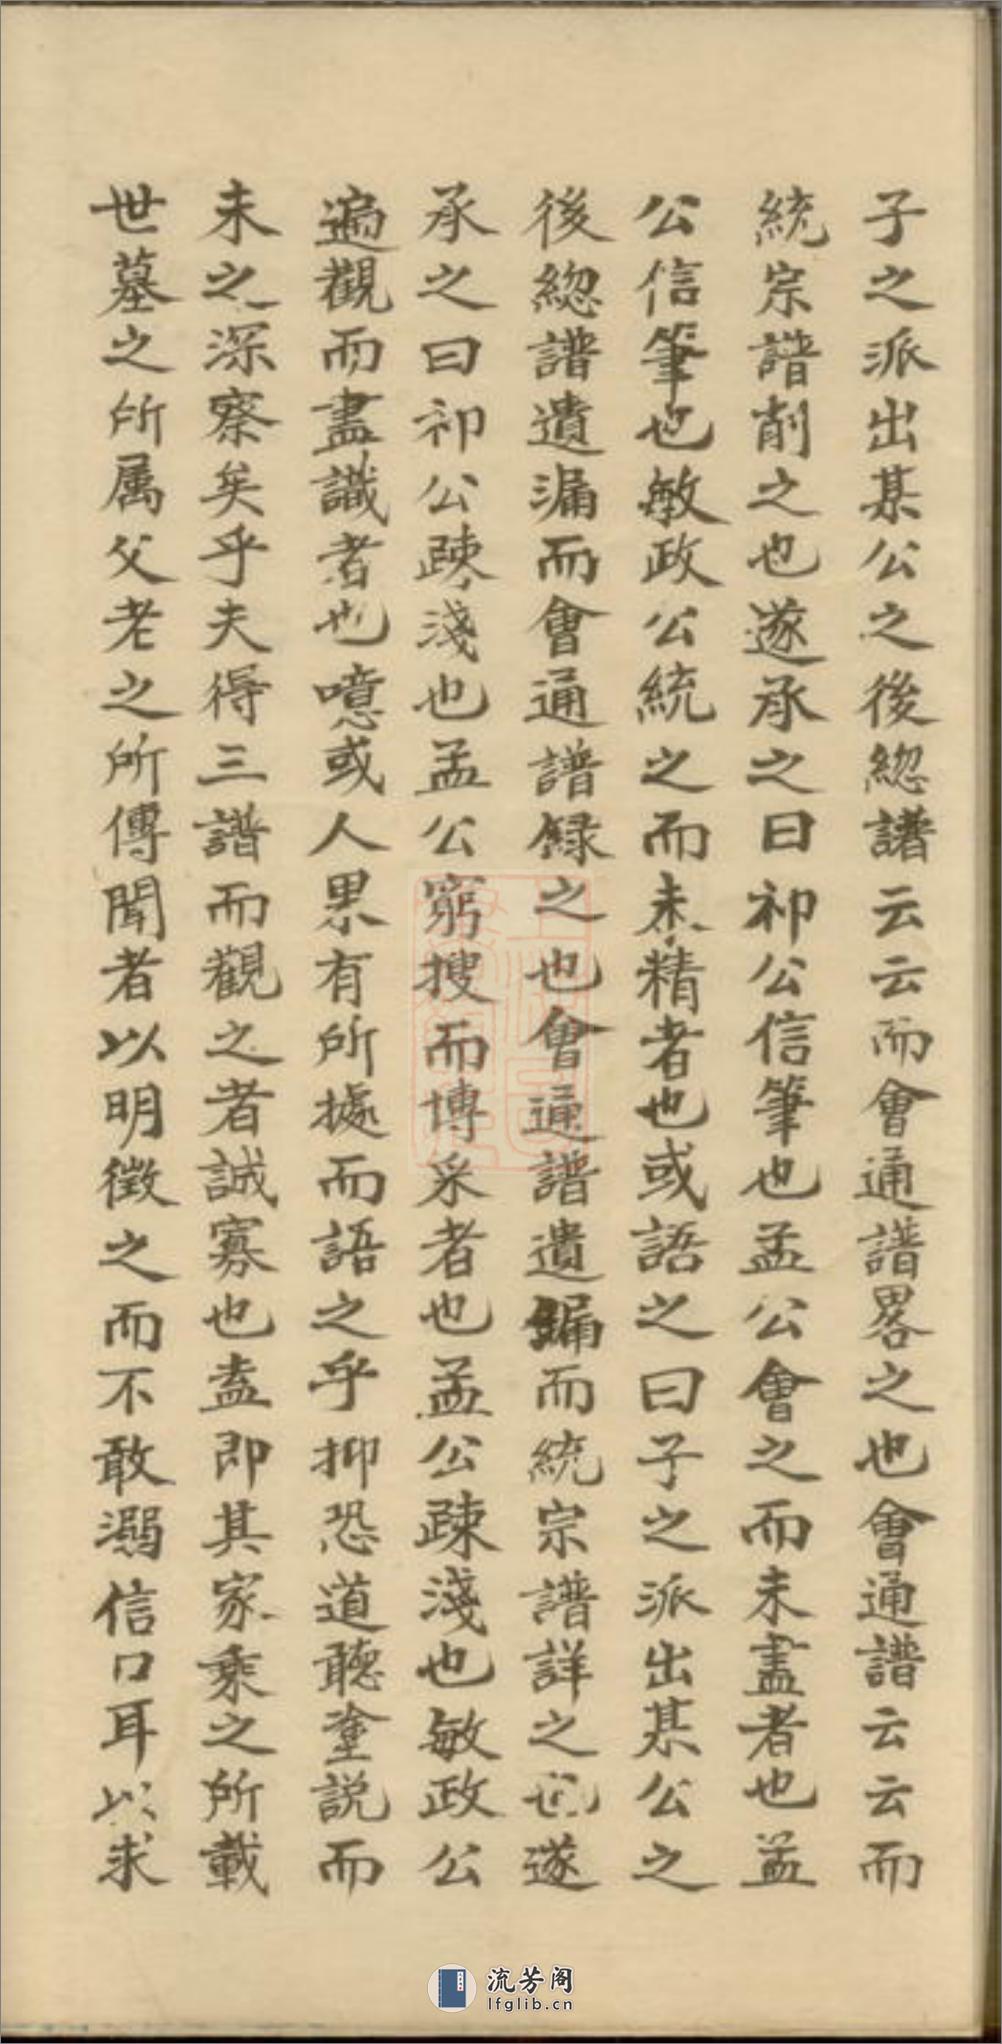 子之派出某公之後緫譜云云而會通譜畧之也會通譜云云而
統宗譜削之也遂承之曰祁公信筆也孟公會之而未盡者也孟
公信筆也敏政公統之而未精者也或語之曰子之派出某公之
後緫譜遺漏而會通譜録之也會通譜遺漏而統宗譜詳之也遂
承之曰祁公疎淺也孟公窮搜而博采者也孟公疎淺也敏政公
遍觀而盡識者也噫或人果有所據而語之乎抑恐道聽塗説而
未之深察矣乎夫得三譜而觀之者誠寡也盍即其家乘之所載
世墓之所属父老之所傳聞者以明徵之而不敢溺信口耳以求
流芳阁
lfglib.cn